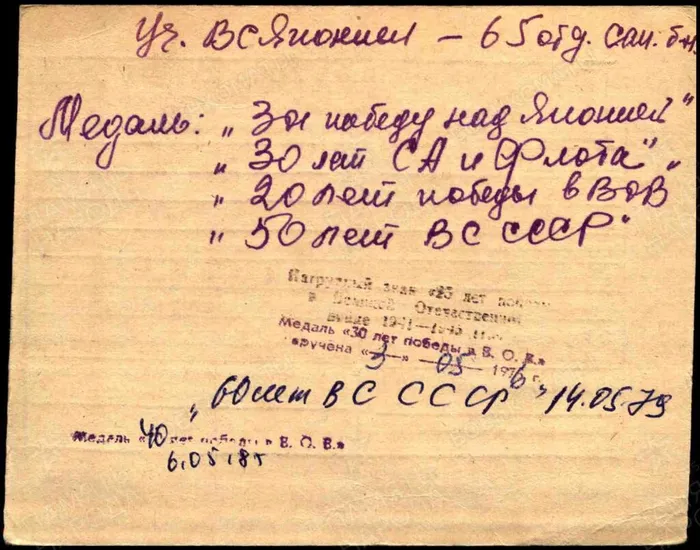 Уч. ВСЯпонией – 65 отд. сан. б-н
Медаль: „За победу над Японией"
„30 лет СА и Флота" „
„20 лет победы в ВОВ
„50 лет ВС СССР"
Нагрудный знак «25 лет победы
в Великой Отечественной
войне 1941—1945 гг.»
Медаль «30 лет победы в В. О. В.»
вручена «3» 05 1976 г.
„60 лет ВС СССР" 14.05.79
Медаль «40 лет победы в В. О. В.»
6.05.85